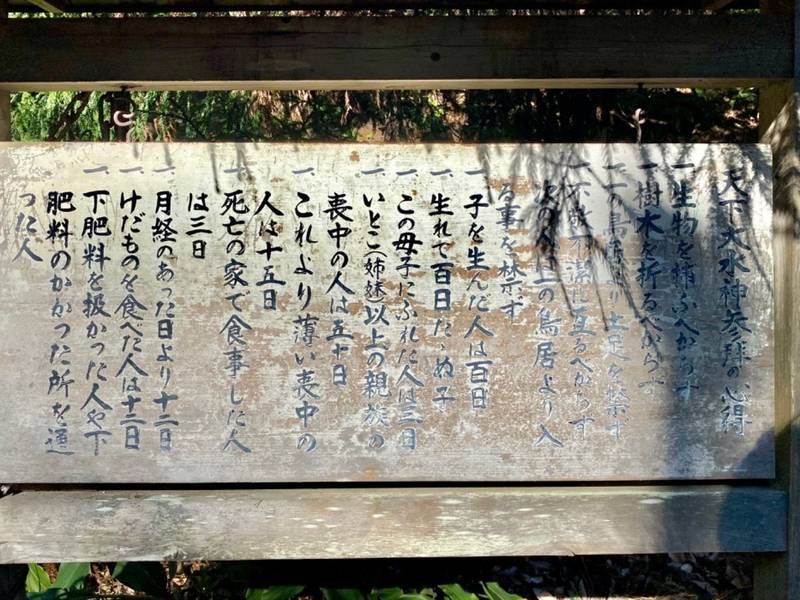 天下大水神参拝の心得
一、生物を捕ふべからず
一、樹木を折るべからず
一、一の鳥居より土足を禁ず
一、不敬不潔に亘るべからず
次の人は一の鳥居より入
る事を禁ず
一、子を生んだ人は百日
一、生れて百日たゝぬ子
一、この母子にふれた人は三日
一、いとこ姉妹以上の親族の
喪中の人は五十日
一、これより薄い喪中の
人は十五日
一、死亡の家で食事した人
は三日
一、月経のあった日より十二日
一、けだものを食べた人は十二日
一、下肥料を扱かった人や下
肥料のかかった所を通
った人